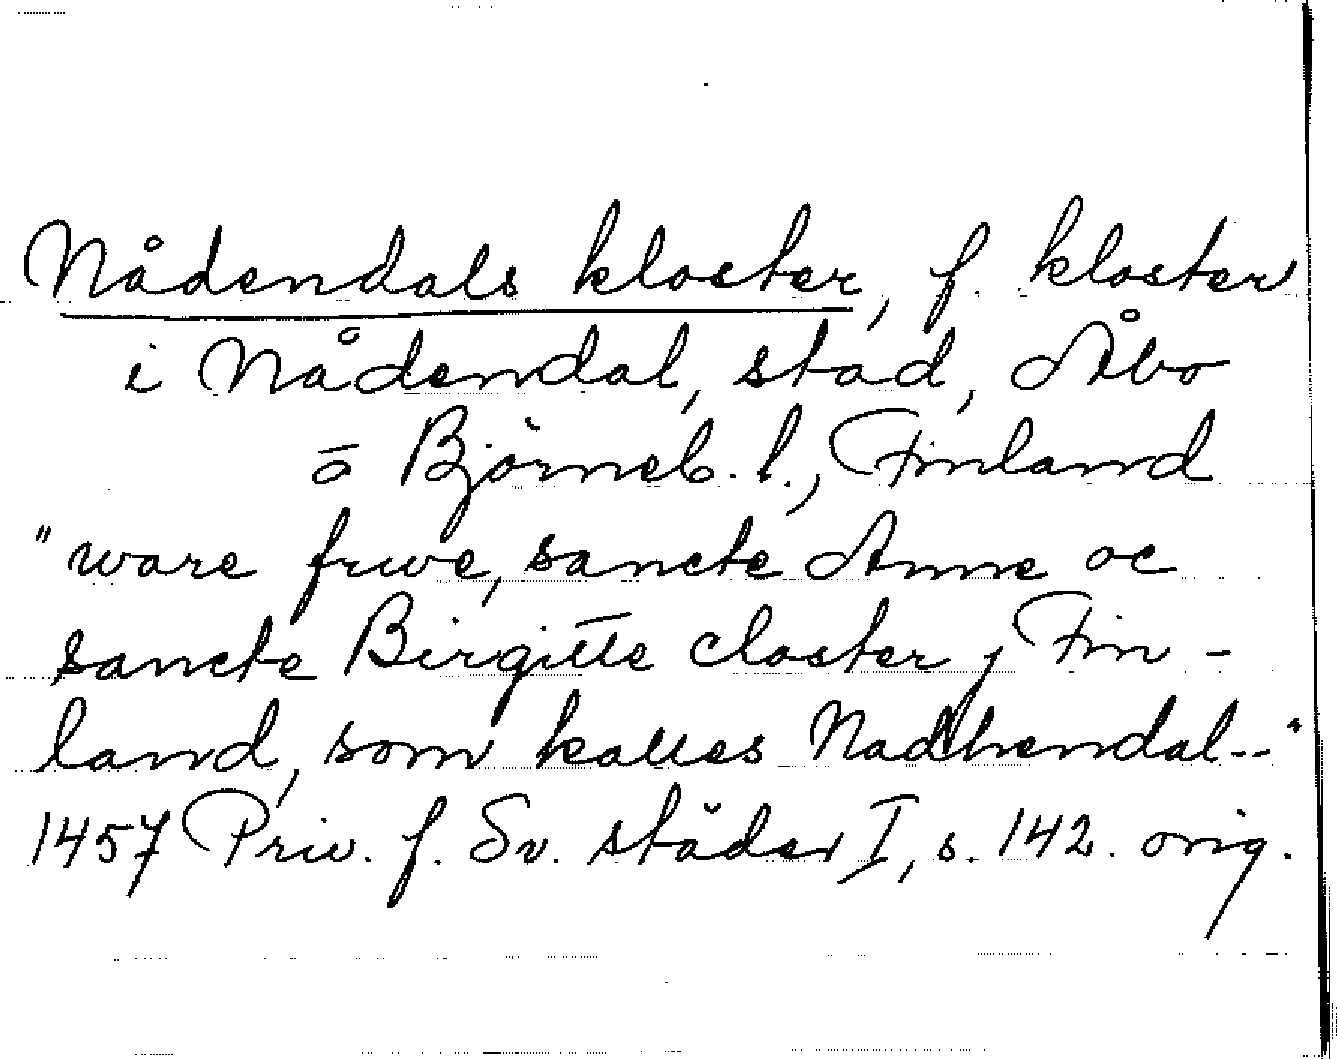 Nådendals kloster, f. kloster
i Nådendal, stad, Åbo
o Björneb. l., Finland
"ware frwe, sancte Anne oc
sancte Birgitte closter j Fin-
land, som kalles Nadhendal--"
1457 Priv. f. Sv. städer I, s. 142. orig.